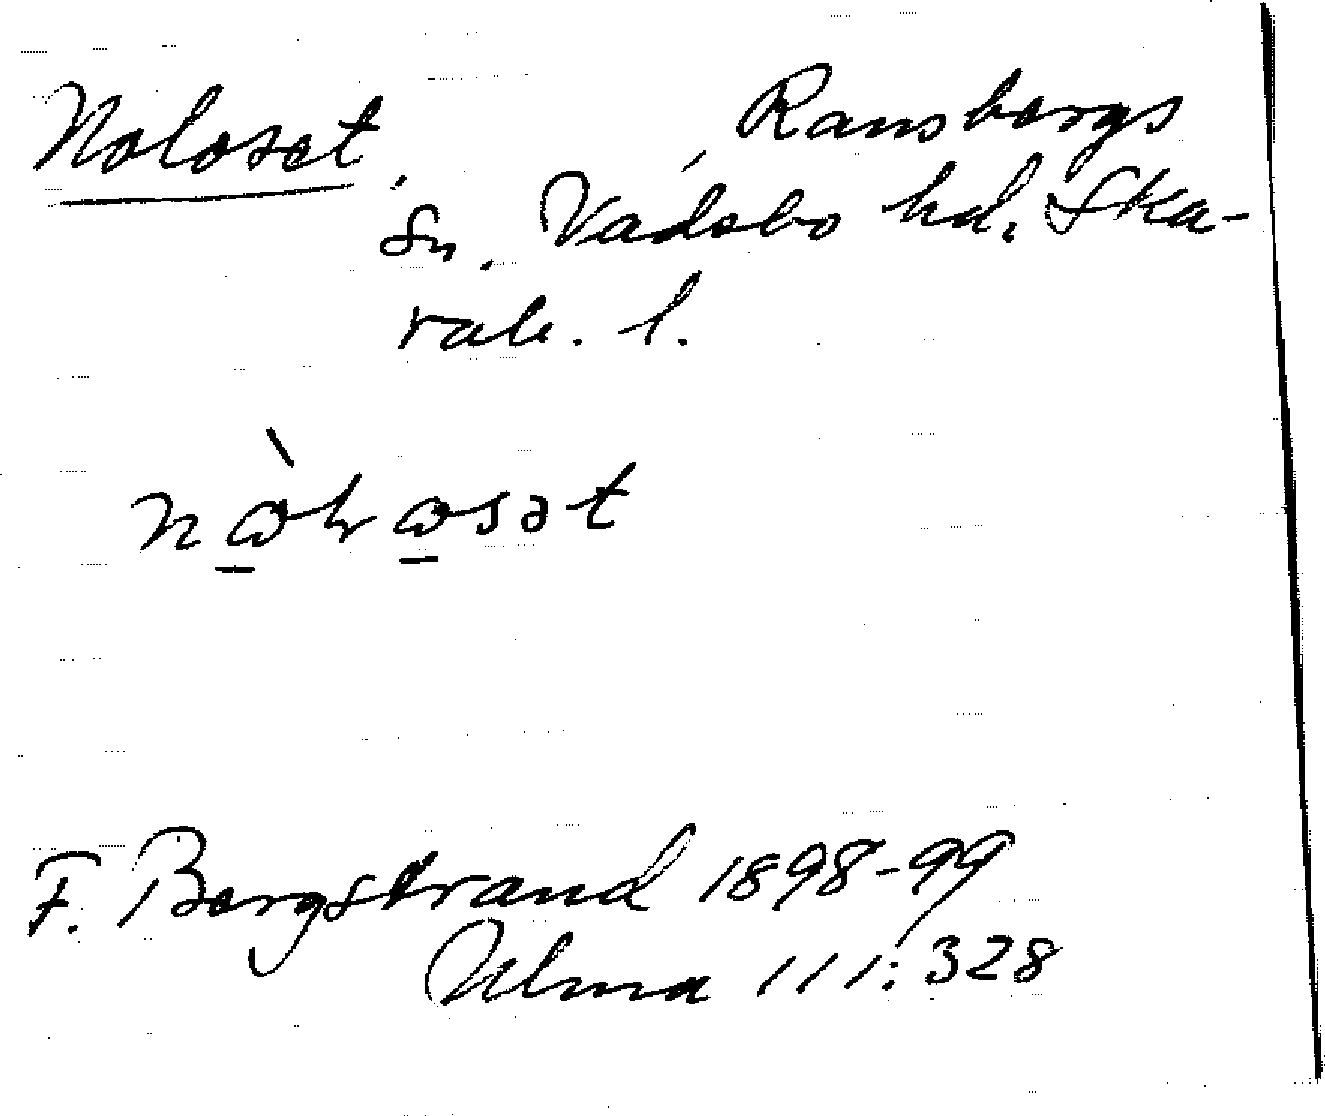 Noloset, Ransbergs
sn. Vadsbo hd. Ska-
rab. l.
F. Bergstrand 1898-99
Ulma 111:328